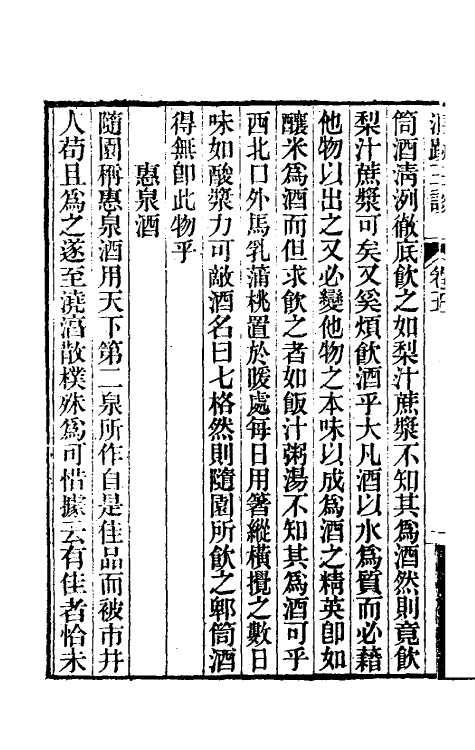 筒酒清冽徹底飲之如梨汁蔗漿不知其爲酒然則竟飲
梨汁蔗漿可矣又奚煩飲酒乎大凡酒以水爲質而必藉
他物以出之又必變他物之本味以成爲酒之精英卽如
釀米爲酒而但求飲之者如飯汁粥湯不知其爲酒可乎
西北口外馬乳蒲桃置於暖處每日用箸縱橫攪之數日
味如酸漿力可敵酒名曰七格然則隨園所飲之郫筒酒
得無卽此物乎
惠泉酒
隨園稱惠泉酒用天下第二泉所作自是佳品而被市井
人苟且爲之遂至澆漓散樸殊爲可惜據云有佳者恰未